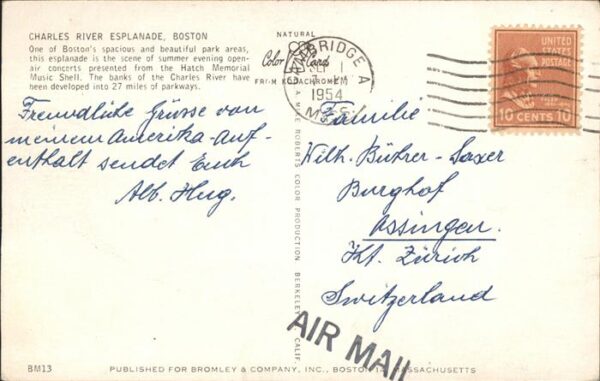 CHARLES RIVER ESPLANADE, BOSTON
One of Boston's spacious and beautiful park areas,
this esplanade is the scene of summer evening open-
air concerts presented from the Hatch Memorial
Music Shell. The banks of the Charles River have
been developed into 27 miles of parkways.
NATURAL
Color Card
FROM KODACHROME
CAMBRIDGE A
1
PM
1954
MASS
UNITED
STATES
POSTAGE
10 CENTS 10
Freundliche Grüsse von
meinem Amerika-Auf-
enthalt sendet Euch
Alb. Hug.
A MIKE ROBERTS COLOR PRODUCTION, BERKELEY, CALIF.
Familie
Wilh. Bührer-Saxer
Burghof
Ossingen.
Kt. Zürich
Switzerland
AIR MAIL
BM13
PUBLISHED FOR BROMLEY & COMPANY, INC., BOSTON 14, MASSACHUSETTS